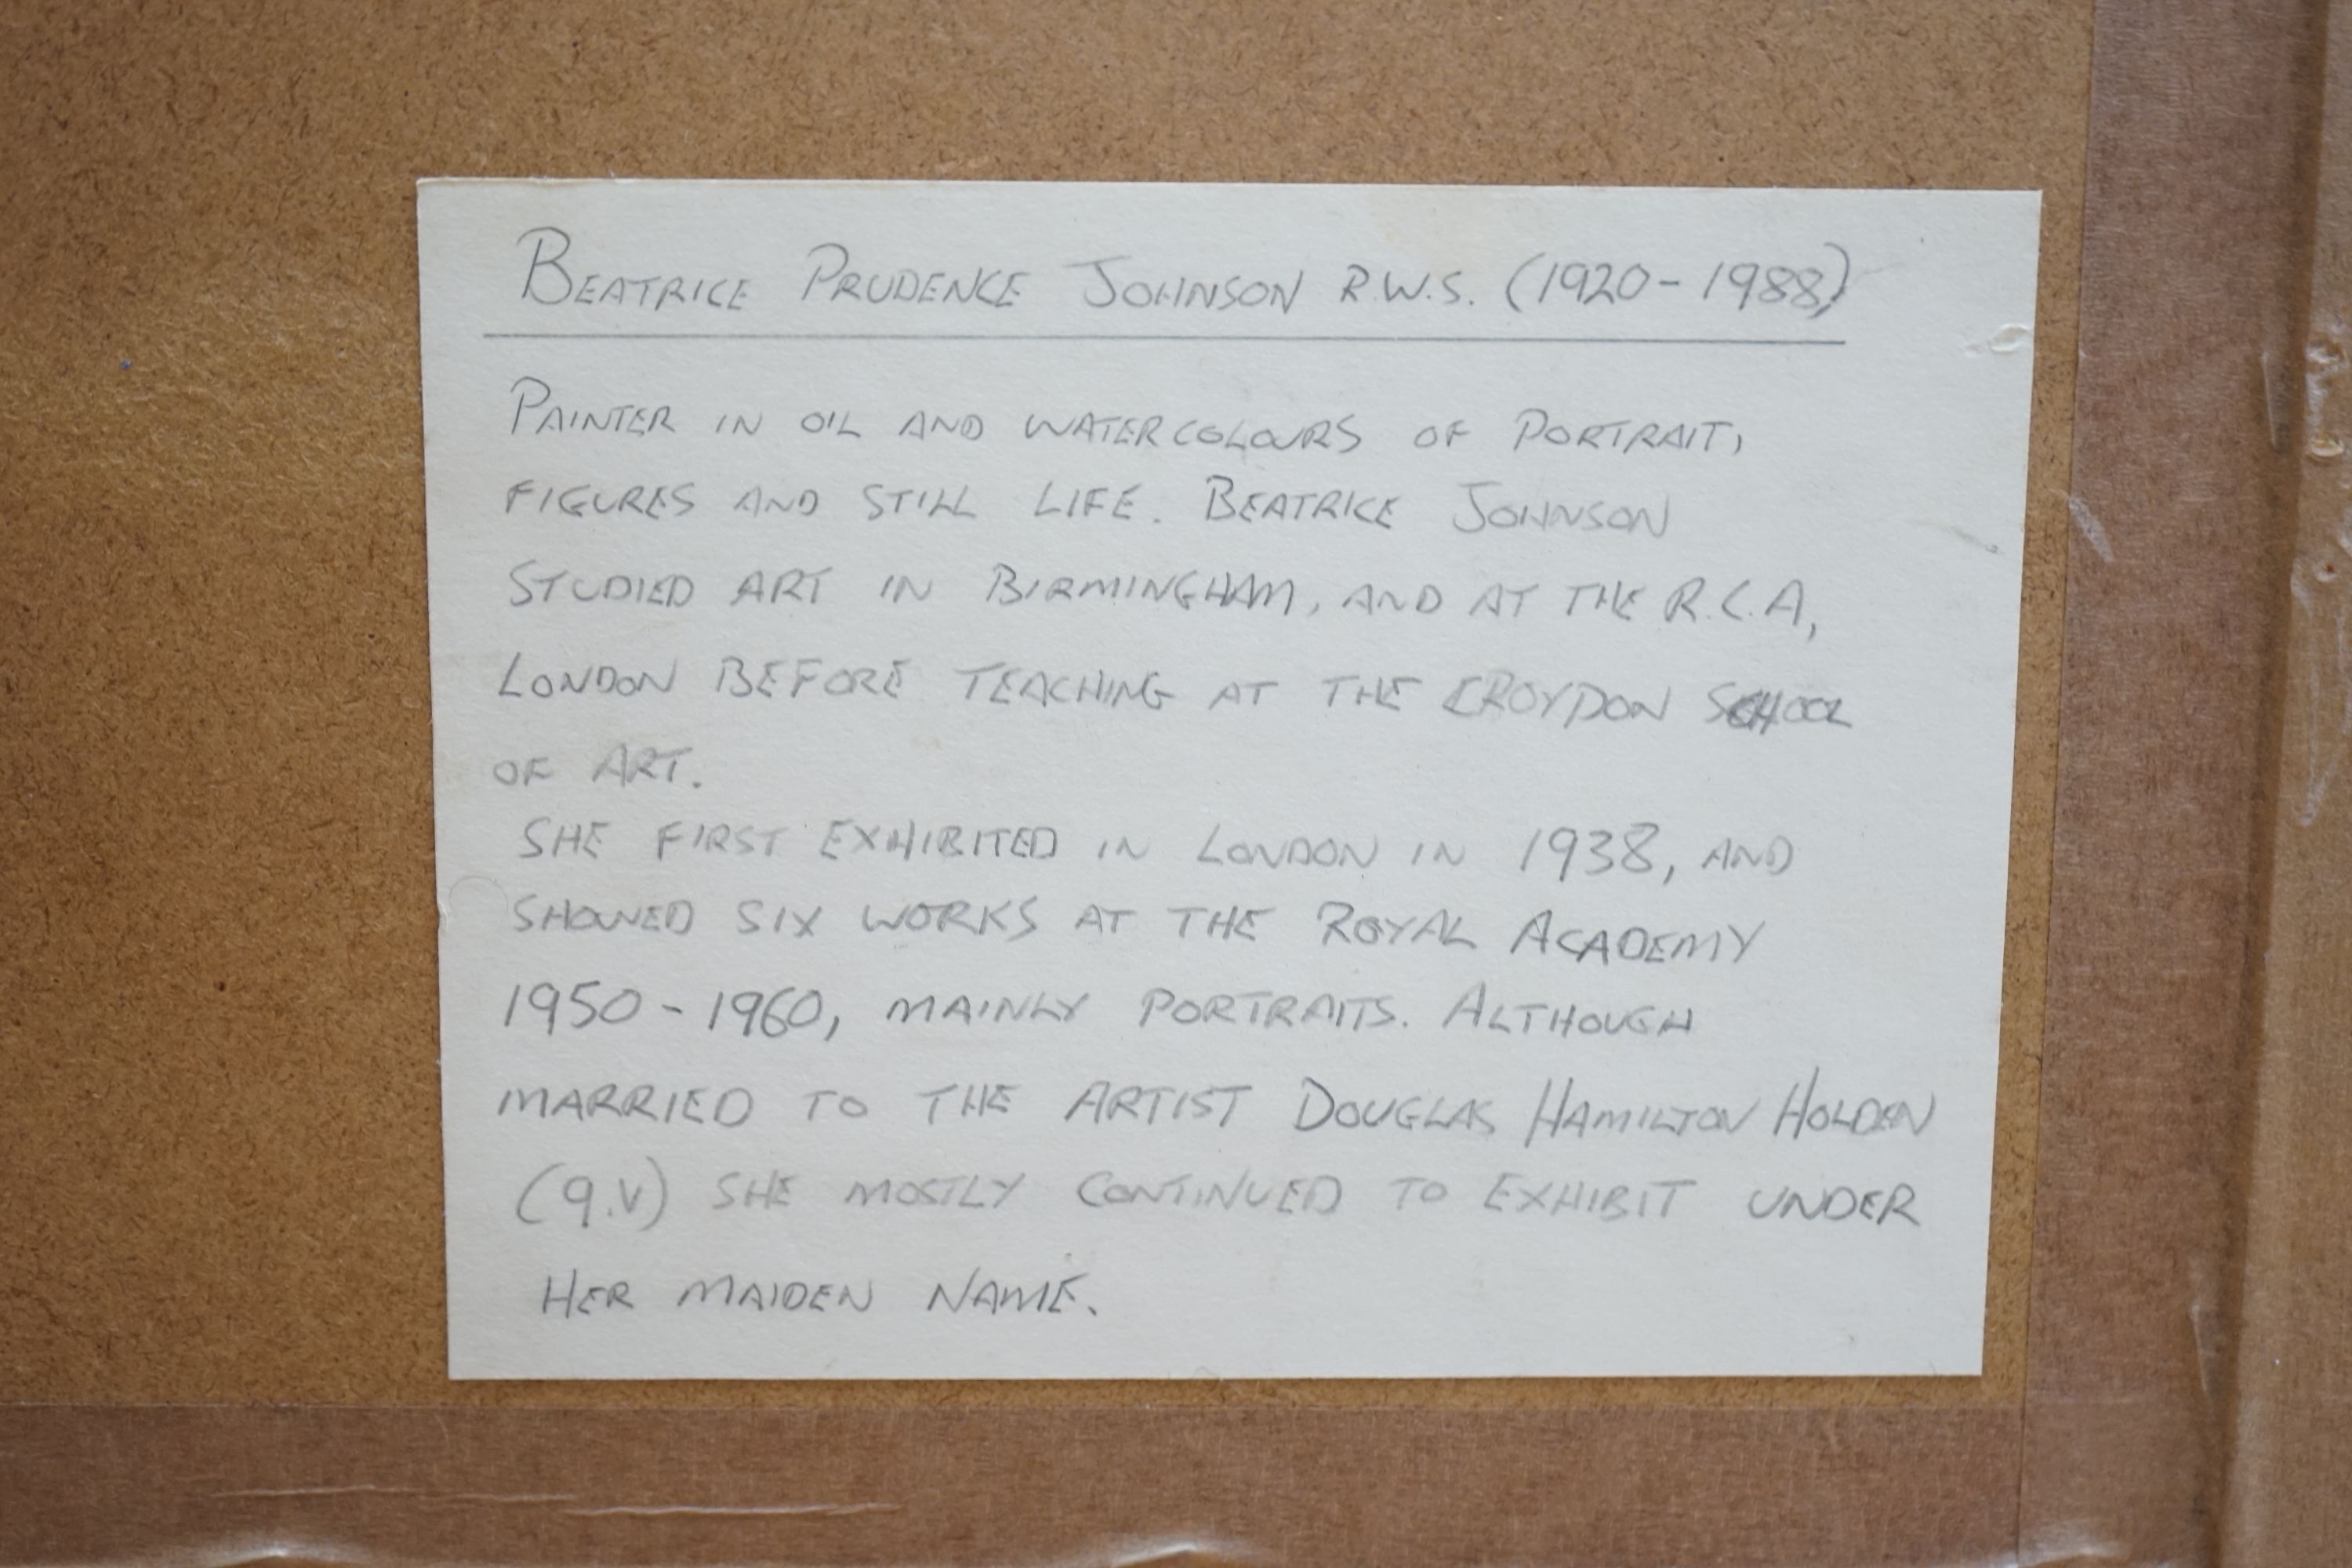 BEATRICE PRUDENCE JOHNSON R.W.S. (1920-1988)
PAINTER IN OIL AND WATERCOLOURS OF PORTRAIT,
FIGURES AND STILL LIFE. BEATRICE JOHNSON
STUDIED ART IN BIRMINGHAM, AND AT THE R.C.A,
LONDON BEFORE TEACHING AT THE CROYDON SCHOOL
OF ART.
SHE FIRST EXHIBITED IN LONDON IN 1938, AND
SHOWED SIX WORKS AT THE ROYAL ACADEMY
1950-1960, MAINLY PORTRAITS. ALTHOUGH
MARRIED TO THE ARTIST DOUGLAS HAMILTON HOLDEN
(q.v) SHE MOSTLY CONTINUED TO EXHIBIT UNDER
HER MAIDEN NAME.